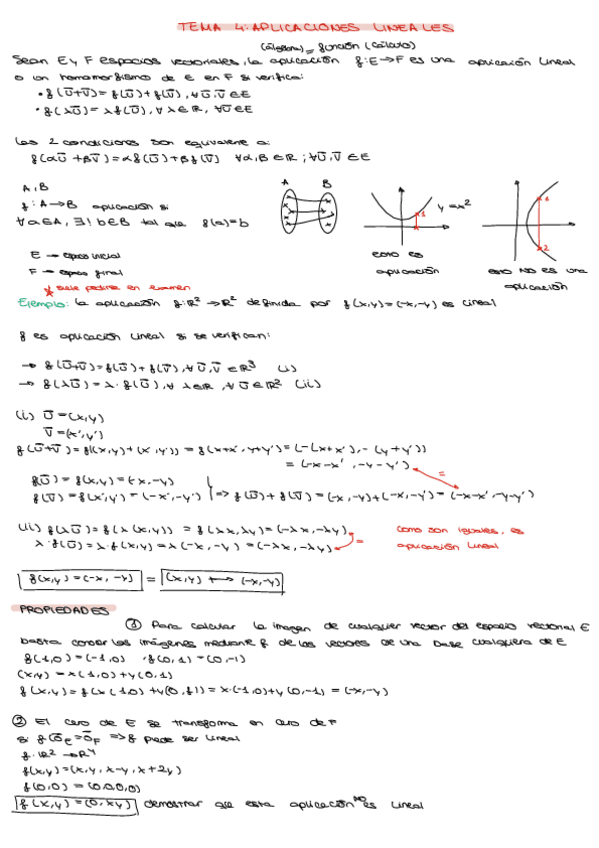 TEMA 4: APLICACIONES LINEALES
(álgebra) = función (cálculo)
Sean E y F espacios vectoriales, la aplicación f: E → F es una aplicación lineal
o un homomorfismo de E en F si verifica:
• f(ū+v̄) = f(ū) + f(v̄), ∀ ū, v̄ ∈ E
• f(λū) = λf(ū), ∀ λ ∈ R, ∀ū ∈ E
Las 2 condiciones son equivalente a:
f(αū + βv̄) = αf(ū) + βf(v̄) ∀α,β ∈ R ; ∀ū,v̄ ∈ E
A, B
f: A → B aplicación si
∀ a ∈ A, ∃! b ∈ B tal que f(a) = b
A B
y = x²
1
1
2
E → espacio inicial
F → espacio final
esto es
aplicación
esto NO es una
aplicación
* suele pedirse en examen
Ejemplo: la aplicación f: R² → R² definida por f(x,y) = (-x,-y) es lineal
f es aplicación lineal si se verifican:
→ f(ū+v̄) = f(ū) + f(v̄), ∀ ū, v̄ ∈ R³ (i)
→ f(λū) = λ · f(ū), ∀ λ ∈ R, ∀ ū ∈ R² (ii)
(i) ū = (x,y)
v̄ = (x',y')
f(ū+v̄) = f((x,y) + (x',y')) = f(x+x', y+y') = (-(x+x'), -(y+y'))
= (-x-x', -y-y')
=
f(ū) = f(x,y) = (-x,-y)
f(v̄) = f(x',y') = (-x',-y')
=> f(ū) + f(v̄) = (-x,-y) + (-x,-y') = (-x-x', -y-y')
(ii) f(λū) = f(λ(x,y)) = f(λx, λy) = (-λx, -λy)
λ · f(ū) = λ · f(x,y) = λ(-x,-y) = (-λx, -λy)
=
como son iguales, es
aplicación lineal
f(x,y) = (-x,-y) = (x,y) ↔ (-x,-y)
PROPIEDADES
① Para calcular la imagen de cualquier vector del espacio vectorial E
basta conocer las imágenes mediante f de los vectores de una base cualquiera de E
f(1,0) = (-1,0) , f(0,1) = (0,-1)
(x,y) = x(1,0) + y(0,1)
f(x,y) = f(x(1,0) + y(0,1)) = x·(-1,0) + y(0,-1) = (-x,-y)
② El cero de E se transforma en cero de F
si f(0̄E = 0̄F => f puede ser lineal
f: R² → R⁴
f(x,y) = (x, y, x-y, x+2y)
f(0,0) = (0,0,0,0)
f(x,y) = (0, xy) demostrar que esta aplicación NO es lineal